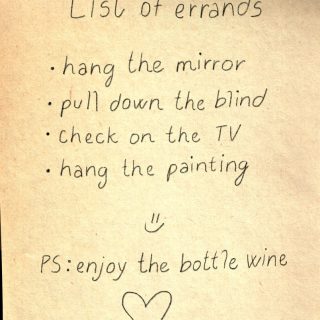 List of errands
• hang the mirror
• pull down the blind
• check on the TV
• hang the painting
PS: enjoy the bottle wine